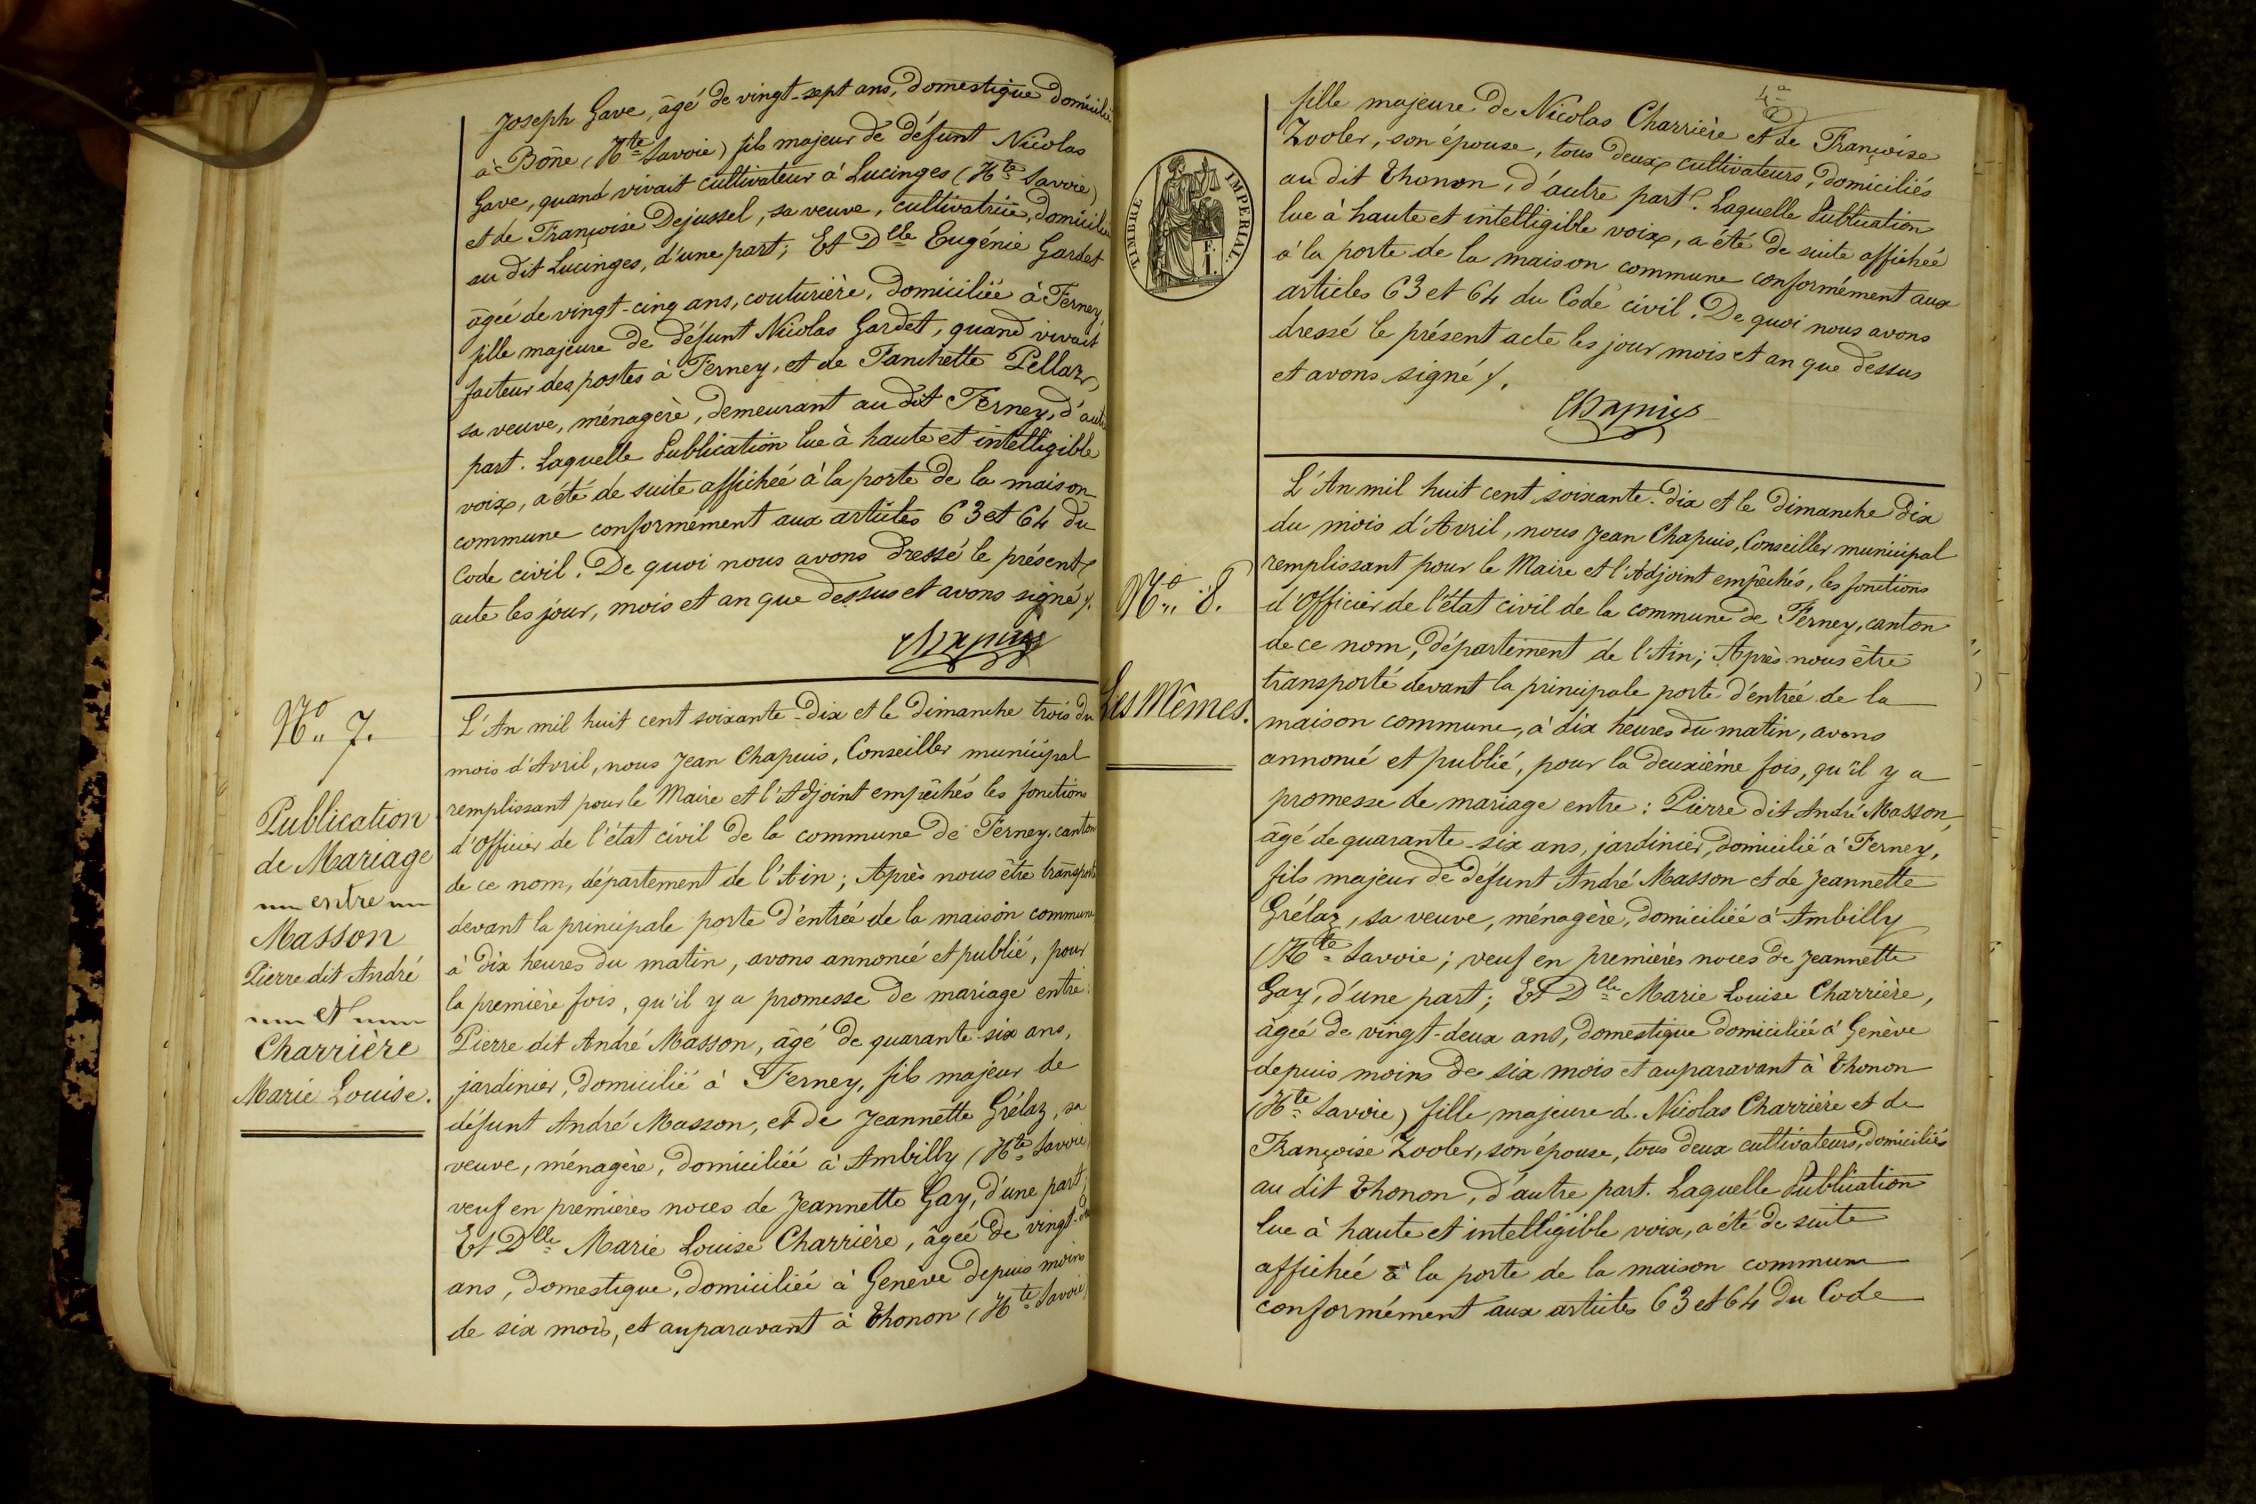 Joseph Gave, âgé de vingt-sept ans, domestique domicilié
à Bône (Hte Savoie) fils majeur de défunt Nicolas
Gave, quand vivait cultivateur à Lucinges (Hte Savoie)
et de Françoise Dejussel, sa veuve, cultivatrice, domiciliée
au dit Lucinges, d'une part; Et Dlle Eugénie Gardet
âgée de vingt-cinq ans, couturière, domiciliée à Ferney,
fille majeure de défunt Nicolas Gardet, quand vivait
facteur des postes à Ferney, et de Fanchette Pellaz,
sa veuve, ménagère, demeurant au dit Ferney, d'autre
part. Laquelle Publication lue à haute et intelligible
voix, a été de suite affichée à la porte de la maison
commune conformément aux articles 63 et 64 du
Code civil. De quoi nous avons dressé le présent
acte les jour, mois et an que dessus et avons signé /.
Chapuis
No 7.
Publication
de Mariage
entre
Masson
Pierre dit André
et
Charrière
Marie Louise.
L'An mil huit cent soixante-dix et le dimanche trois du
mois d'Avril, nous Jean Chapuis, Conseiller municipal
remplissant pour le Maire et l'Adjoint empêchés les fonctions
d'Officier de l'état civil de la commune de Ferney, canton
de ce nom, département de l'Ain; Après nous être transporté
devant la principale porte d'entrée de la maison commune
à dix heures du matin, avons annoncé et publié, pour
la première fois, qu'il y a promesse de mariage entre:
Pierre dit André Masson, âgé de quarante-six ans,
jardinier, domicilié à Ferney, fils majeur de
défunt André Masson, et de Jeannette Grélaz, sa
veuve, ménagère, domiciliée à Ambilly (Hte Savoie)
veuf en premières noces de Jeannette Gay, d'une part;
Et Dlle Marie Louise Charrière, âgée de vingt-deux
ans, domestique, domiciliée à Genève depuis moins
de six mois, et auparavant à Thonon (Hte Savoie)
4e
fille majeure de Nicolas Charrière et de Françoise
Zooler, son épouse, tous deux cultivateurs, domiciliés
au dit Thonon, d'autre part. Laquelle Publication
lue à haute et intelligible voix, a été de suite affichée
à la porte de la maison commune conformément aux
articles 63 et 64 du Code civil. De quoi nous avons
dressé le présent acte les jour mois et an que dessus
et avons signé /.
Chapuis
TIMBRE IMPERIAL.
F.
I.
No 8.
Les Mêmes.
L'An mil huit cent soixante-dix et le dimanche dix
du mois d'Avril, nous Jean Chapuis, Conseiller municipal
remplissant pour le Maire et l'Adjoint empêchés, les fonctions
d'Officier de l'état civil de la commune de Ferney, canton
de ce nom, département de l'Ain; Après nous être
transporté devant la principale porte d'entrée de la
maison commune, à dix heures du matin, avons
annoncé et publié, pour la deuxième fois, qu'il y a
promesse de mariage entre: Pierre dit André Masson,
âgé de quarante-six ans, jardinier, domicilié à Ferney,
fils majeur de défunt André Masson et de Jeannette
Grélaz, sa veuve, ménagère, domiciliée à Ambilly
(Hte Savoie; veuf en premières noces de Jeannette
Gay, d'une part; Et Dlle Marie Louise Charrière,
âgée de vingt-deux ans, domestique domiciliée à Genève
depuis moins de six mois et auparavant à Thonon
(Hte Savoie) fille majeure de Nicolas Charrière et de
Françoise Zooler, son épouse, tous deux cultivateurs, domiciliés
au dit Thonon, d'autre part. Laquelle Publication
lue à haute et intelligible voix, a été de suite
affichée à la porte de la maison commune
conformément aux articles 63 et 64 du Code